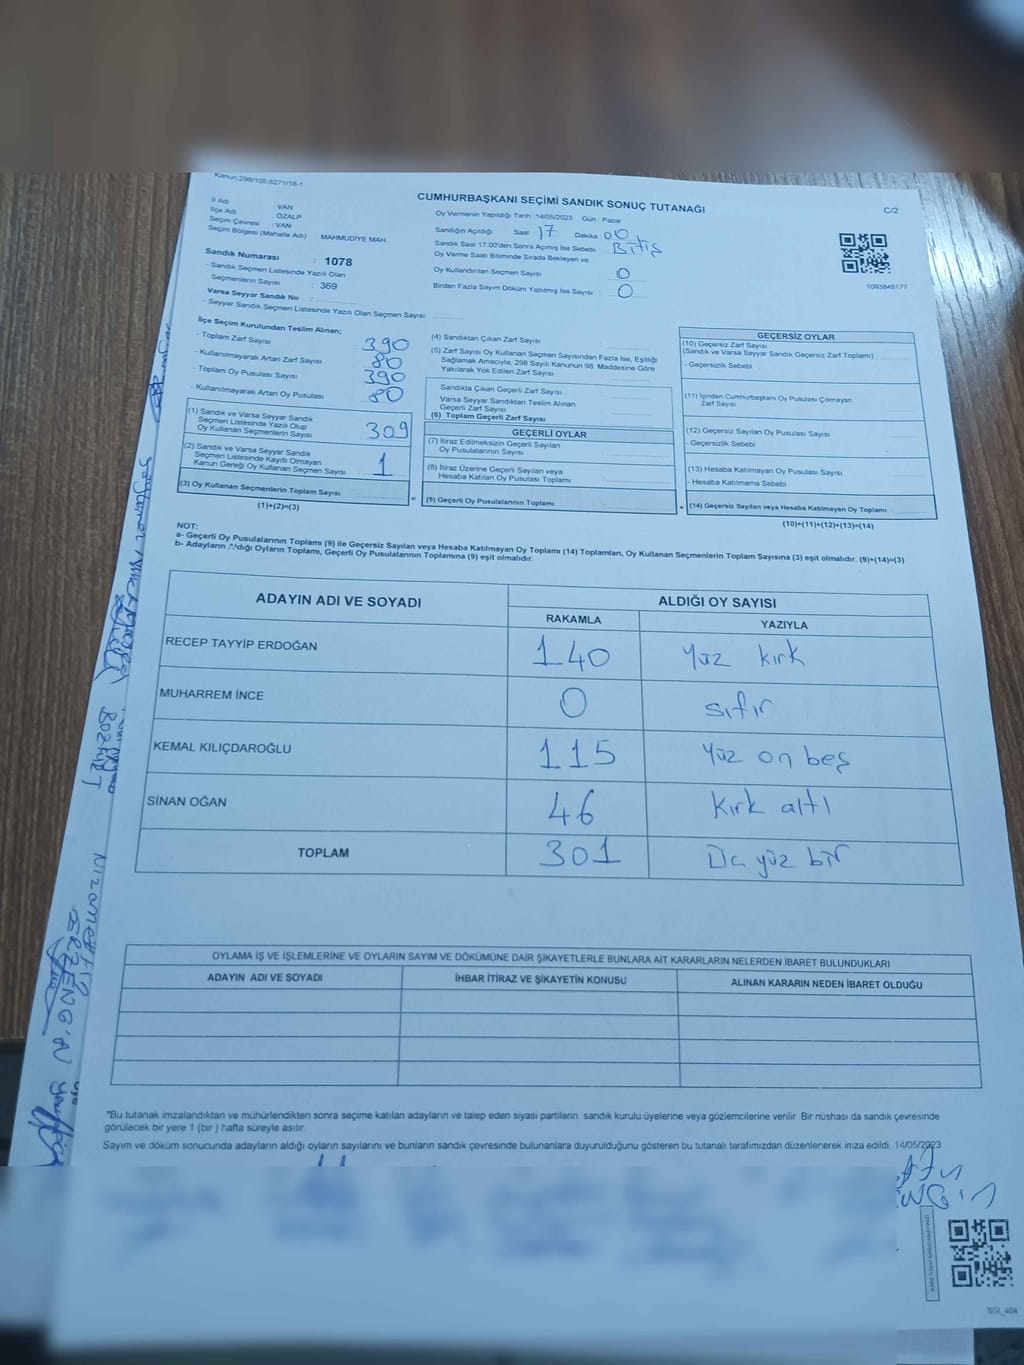 Kanun:298/105;6271/18-1
CUMHURBAŞKANI SEÇİMİ SANDIK SONUÇ TUTANAĞI
C/2
İl Adı : VAN
İlçe Adı : ÖZALP
Seçim Çevresi : VAN
Seçim Bölgesi (Mahalle Adı) MAHMUDİYE MAH.
Sandık Numarası : 1078
- Sandık Seçmen Listesinde Yazılı Olan
Seçmenlerin Sayısı : 369
Varsa Seyyar Sandık No :
- Seyyar Sandık Seçmen Listesinde Yazılı Olan Seçmen Sayısı:
Oy Vermenin Yapıldığı Tarih :14/05/2023 Gün : Pazar
Sandığın Açıldığı Saat 17 Dakika 00
Sandık Saat 17:00'den Sonra Açılmış İse Sebebi Bitiş
Oy Verme Saati Bitiminde Sırada Bekleyen ve
Oy Kullandırılan Seçmen Sayısı 0
Birden Fazla Sayım Döküm Yapılmış İse Sayısı 0
1093849177
İlçe Seçim Kurulundan Teslim Alınan;
- Toplam Zarf Sayısı 390
- Kullanılmayarak Artan Zarf Sayısı 80
- Toplam Oy Pusulası Sayısı 390
- Kullanılmayarak Artan Oy Pusulası 80
(1) Sandık ve Varsa Seyyar Sandık
Seçmen Listesinde Yazılı Olup
Oy Kullanan Seçmenlerin Sayısı 309
(2) Sandık ve Varsa Seyyar Sandık
Seçmen Listesinde Kayıtlı Olmayan
Kanun Gereği Oy Kullanan Seçmen Sayısı 1
(3) Oy Kullanan Seçmenlerin Toplam Sayısı
(1)+(2)=(3)
=
(4) Sandıktan Çıkan Zarf Sayısı
(5) Zarf Sayısı Oy Kullanan Seçmen Sayısından Fazla İse, Eşitliği
Sağlamak Amacıyla, 298 Sayılı Kanunun 98. Maddesine Göre
Yakılarak Yok Edilen Zarf Sayısı
Sandıkta Çıkan Geçerli Zarf Sayısı
Varsa Seyyar Sandıktan Teslim Alınan
Geçerli Zarf Sayısı
(6) Toplam Geçerli Zarf Sayısı
GEÇERLİ OYLAR
(7) İtiraz Edilmeksizin Geçerli Sayılan
Oy Pusulalarının Sayısı
(8) İtiraz Üzerine Geçerli Sayılan veya
Hesaba Katılan Oy Pusulası Toplamı
(9) Geçerli Oy Pusulalarının Toplamı
+
GEÇERSİZ OYLAR
(10) Geçersiz Zarf Sayısı
(Sandık ve Varsa Seyyar Sandık Geçersiz Zarf Toplamı)
- Geçersizlik Sebebi
(11) İçinden Cumhurbaşkanı Oy Pusulası Çıkmayan
Zarf Sayısı
(12) Geçersiz Sayılan Oy Pusulası Sayısı
- Geçersizlik Sebebi
(13) Hesaba Katılmayan Oy Pusulası Sayısı
- Hesaba Katılmama Sebebi
(14) Geçersiz Sayılan veya Hesaba Katılmayan Oy Toplamı
(10)+(11)+(12)+(13)=(14)
NOT:
a- Geçerli Oy Pusulalarının Toplamı (9) ile Geçersiz Sayılan veya Hesaba Katılmayan Oy Toplamı (14) Toplamları, Oy Kullanan Seçmenlerin Toplam Sayısına (3) eşit olmalıdır. (9)+(14)=(3)
b- Adayların Aldığı Oyların Toplamı, Geçerli Oy Pusulalarının Toplamına (9) eşit olmalıdır.
ADAYIN ADI VE SOYADI
ALDIĞI OY SAYISI
RAKAMLA YAZIYLA
RECEP TAYYİP ERDOĞAN 140 Yüz kırk
MUHARREM İNCE 0 sıfır
KEMAL KILIÇDAROĞLU 115 Yüz on beş
SİNAN OĞAN 46 Kırk altı
TOPLAM 301 yüz bir
OYLAMA İŞ VE İŞLEMLERİNE VE OYLARIN SAYIM VE DÖKÜMÜNE DAİR ŞİKAYETLERLE BUNLARA AİT KARARLARIN NELERDEN İBARET BULUNDUKLARI
ADAYIN ADI VE SOYADI İHBAR İTİRAZ VE ŞİKAYETİN KONUSU ALINAN KARARIN NEDEN İBARET OLDUĞU
*Bu tutanak imzalandıktan ve mühürlendikten sonra seçime katılan adayların ve talep eden siyasi partilerin sandık kurulu üyelerine veya gözlemcilerine verilir. Bir nüshası da sandık çevresinde
görülecek bir yere 1 (bir ) hafta süreyle asılır.
Sayım ve döküm sonucunda adayların aldığı oyların sayılarını ve bunların sandık çevresinde bulunanlara duyurulduğunu gösteren bu tutanak tarafımızdan düzenlenerek imza edildi. 14/05/2023
BOZKURT
SSI_404